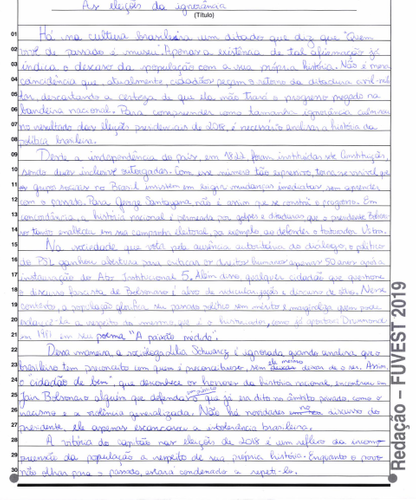 As eleições da ignorância
(Título)
01 Há na cultura brasileira um ditado que diz que "Quem
02 vive de passado é museu". Apenas a existência de tal afirmação já
03 indica o descaso da população com a sua própria história. Não é mera
04 coincidência que, atualmente, cidadãos peçam o retorno da ditadura civil-mili-
05 tar, descartando a certeza de que ela não trará o progresso pregado na
06 bandeira nacional. Para compreender como tamanha ignorância culminou
07 no resultado das eleições presidenciais de 2018, é necessário analisar a história da
08 política brasileira.
09 Desde a independência do país, em 1822, foram instituídas sete Constituições,
10 sendo duas inclusive outorgadas. Com esse número tão expressivo, torna-se visível que
11 os grupos sociais no Brasil insistem em exigir mudanças imediatas sem aprender
12 com o passado. Para George Santayana não é assim que se constrói o progresso. Em
13 concordância, a história nacional é permeada por golpes e ditaduras que o presidente Bolsona-
14 ro tanto enalteceu em sua campanha eleitoral, ao defender o torturador Ustra.
15 Na sociedade que vota pela ausência autoritária do diálogo, o político
16 do PSL ganhou abertura para atacar os direitos humanos apenas 50 anos após a
17 instauração do Ato Institucional 5. Além disso qualquer cidadão que questione
18 o discurso fascista de Bolsonaro é alvo de
19 a população glorifica seu passado político sem
20 a respeito da memória que é o
21 em 1981 em seu poema "A paixão medida".
22 Dessa maneira a socióloga Lilia Schwarcz é ignorada quando analisa que o
23 brasileiro tem preconceito com quem é preconceituoso, sem ele mesmo deixar de o ser. Assim,
24 o "cidadão de bem", que desconhece os horrores da história nacional encontrou em
25 Jair Bolsonaro alguém que defende o que já era dito no âmbito privado como o
26 racismo e a violência generalizada. Não há novidades no discurso do
27 presidente, ele apenas escancarou a intolerância brasileira.
28 A vitória do capitão nas eleições de 2018 é um reflexo da incom-
29 preensão da população a respeito de sua própria história. Enquanto o povo
30 não olhar para o passado, estará condenado a repeti-lo.
Redação - FUVEST 2019